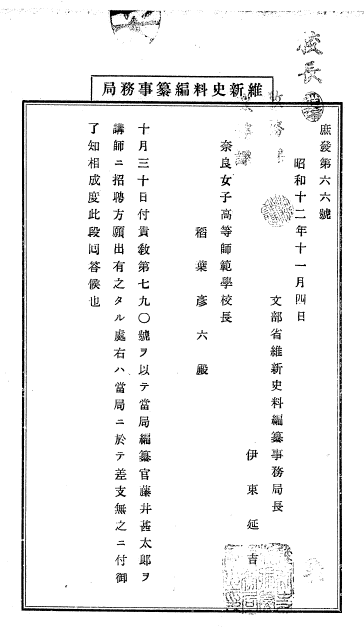 維新史料編纂事務局
校長
庶發第六六號
昭和十二年十一月四日
文部省維新史料編纂事務局長
伊東延吉
奈良女子高等師範學校長
稻葉彥六殿
十月三十日付貴敎第七九〇號ヲ以テ當局編纂官藤井甚太郎ヲ
講師ニ招聘方願出有之タル處右ハ當局ニ於テ差支無之ニ付御
了知相成度此段囘答候也